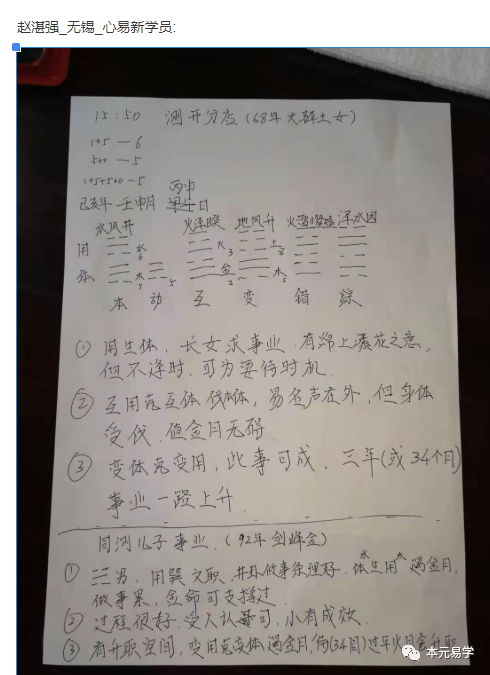 赵湛强_无锡_心易新学员:
15:50 测开分店（68年大驿土女）
1+5 — 6
5+0 — 5
1+5+5+0 — 5 丙申
己亥年 壬申月 日
水风井 火泽睽 地风升 火雷噬嗑 泽水困
用 水6 火3 土8
体 木5 5 金2 木5
本 动 互 变 错 综
① 用生体，长女求事业，有锦上添花之意，
但不逢时，可为要待时机.
② 互用克互体 伐体，易名声在外，但身体
受伐，值金月无碍.
③ 变体克变用，此事可成，三年(或34个月)
事业一路上升.
同测儿子事业，(92年剑峰金)
① 男，用巽 文职，井卦做事条理好，体生用 遇金月，
做事累，金命可支撑过.
② 过程很好，受人认可，小有成效.
③ 有升职空间，变用克变体遇金月，(34月)过年
本元易学